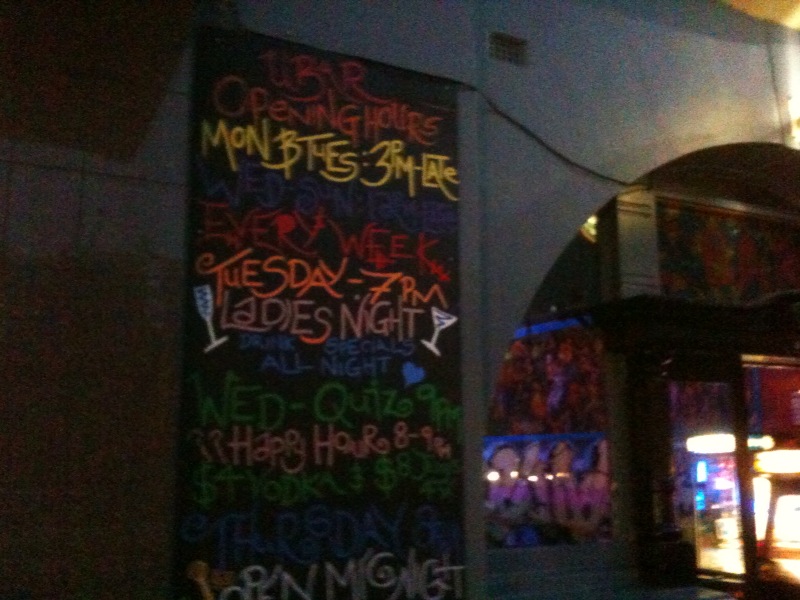 UBAR
OPENING HOURS
MON & TUES: 3PM-LATE
WED-SUN:
EVERY WEEK
TUESDAY - 7PM
LADIES NIGHT
DRINK SPECIALS
ALL NIGHT
WED - QUIZ 9PM
HAPPY HOUR 8-9PM
$4 VODKA $8
THURSDAY
OPEN MIC NIGHT